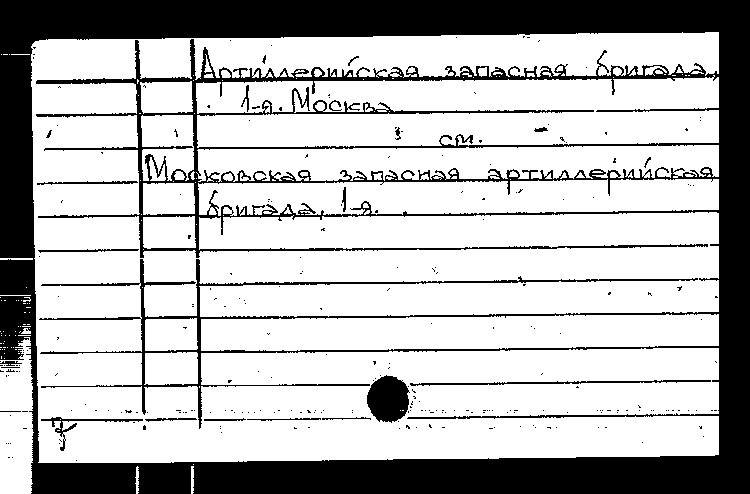 Артиллерийская запасная бригада,
1-я. Москва
см.
Московская запасная артиллерийская
бригада, 1-я.